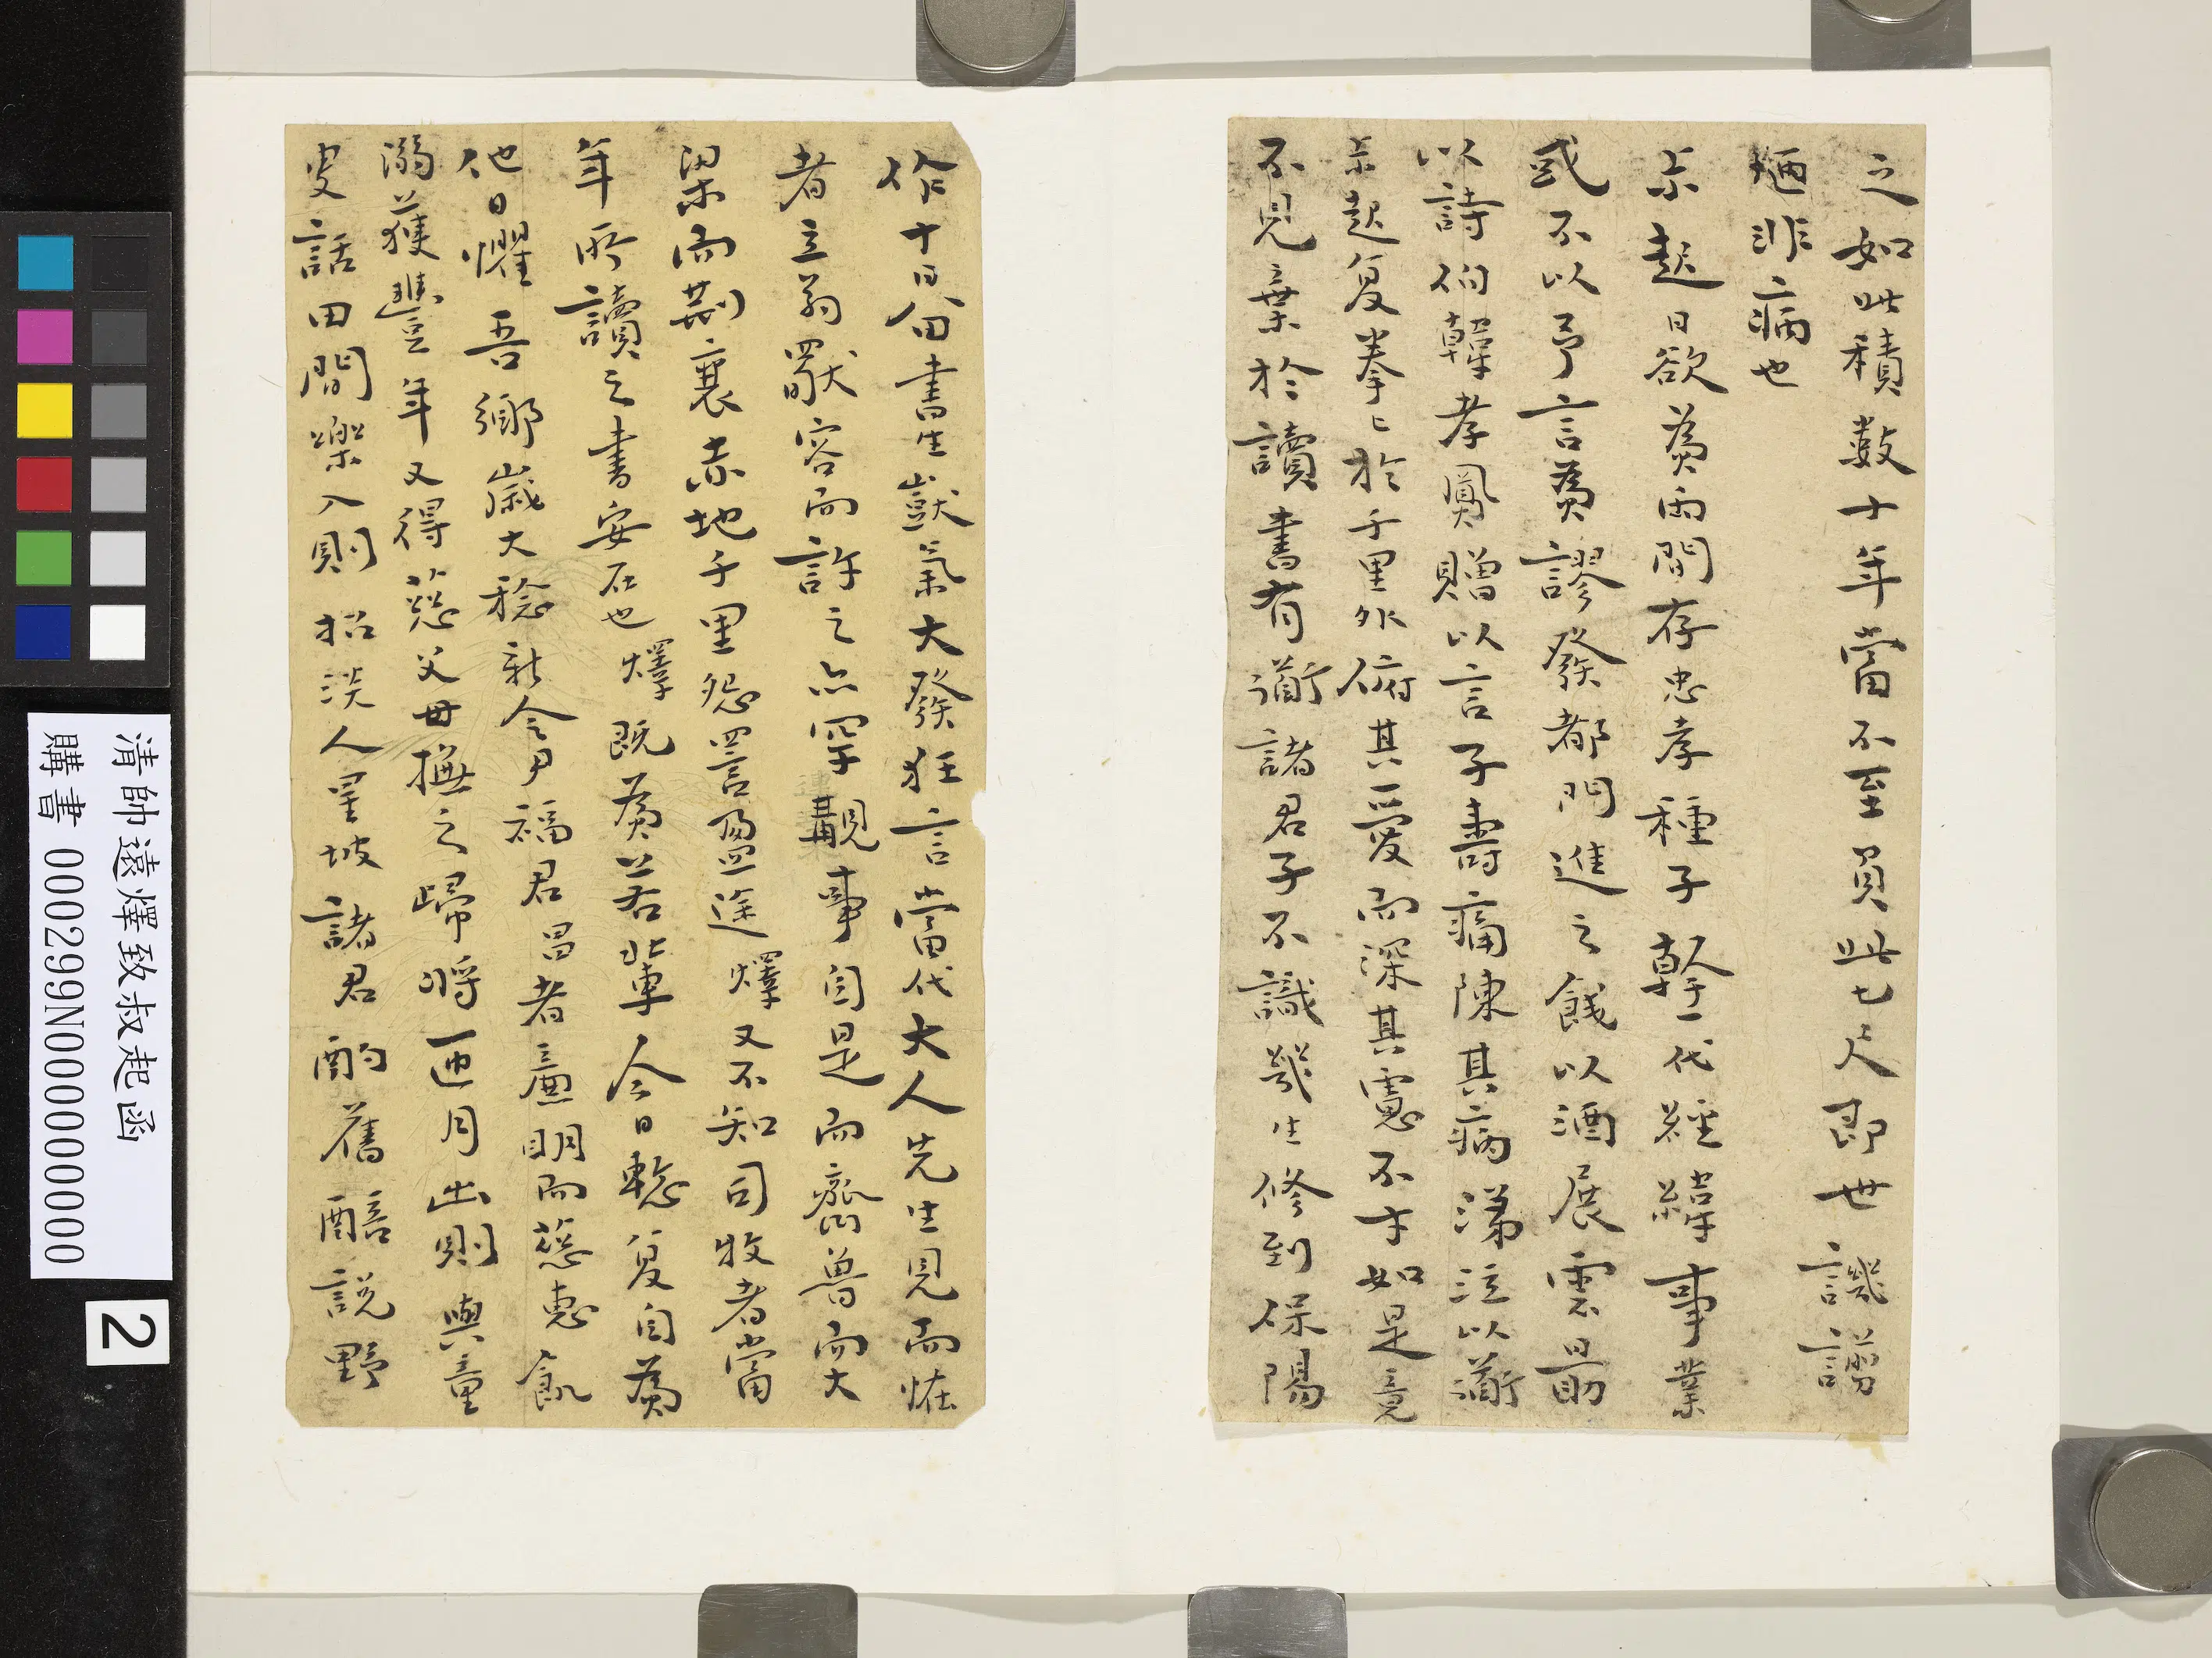 之如此積數十年當不至負此七尺即世譏謟
迺非病也
叔起日欲爲兩間存忠孝種子幹一代經緯事業
或不以予言爲謬發都門進之餞以酒展雲勗
以詩伯韓孝鳳贈以言子壽痛陳其病涕泣以道
叔起复拳拳於千里外俯其愛而深其慮不才如是竟
不見棄於讀書有道諸君子不識幾生修到保陽
作十日留書生獃氣大發狂言當代大人先生見而怪
者立多獸容而許之亦罕覯事自是而齊魯而大
梁而荆襄赤地千里怨詈盈途燡又不知司牧者當
年所讀之書安在也燡既爲若輩今日愁复自爲
他日懼吾鄉歲大稔新令尹福君昌者廉明而慈惠飢
溺獲豐年又得慈父母撫之歸將匝月出則與童
叟話田間樂入則招淡人星坡諸君酌舊醅説野
清帥遠燡致叔起函
購書 000299N000000000
2